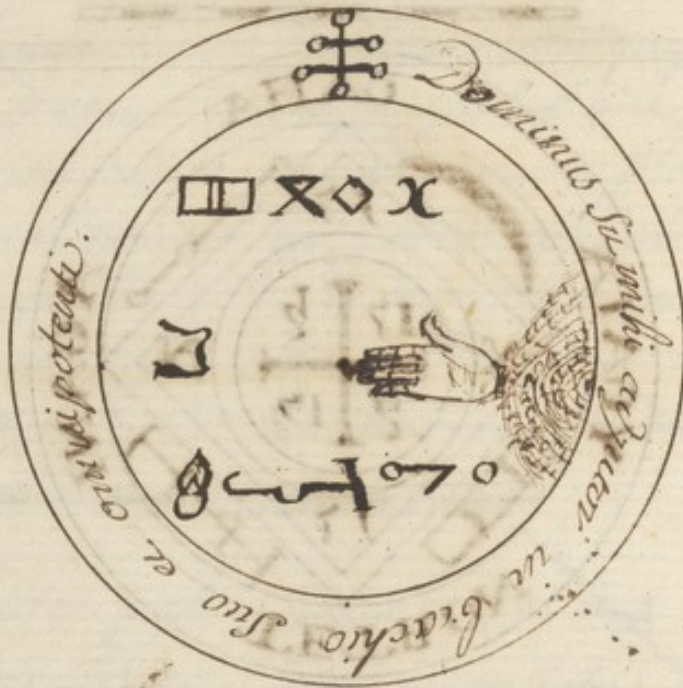 Dominus Su mihi adjutor in brachio Suo et omnipotenti.